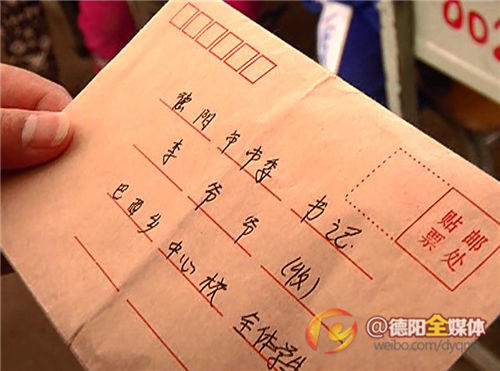 德阳市市委书记
李爷爷(收)
巴西乡中心校全体学生
贴邮
票处
00
@德阳全媒体
weibo.com/dyqm